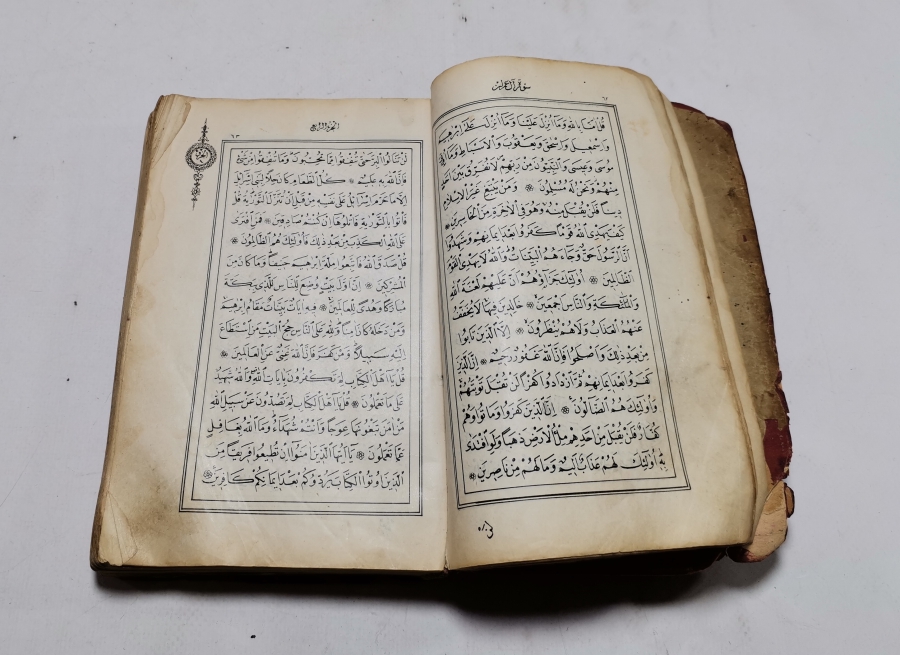 سورة آل عمران
٦٢
قُلْ اٰمَنَّا بِاللّٰهِ وَمَا اُنْزِلَ عَلَيْنَا وَمَا اُنْزِلَ عَلٰى اِبْرٰهِيمَ
وَاِسْمٰعِيلَ وَاِسْحٰقَ وَيَعْقُوبَ وَالْاَسْبَاطِ وَمَا اُوتِىَ
مُوسٰى وَعِيسٰى وَالنَّبِيُّونَ مِنْ رَبِّهِمْ لَا نُفَرِّقُ بَيْنَ اَحَدٍ
مِنْهُمْ وَنَحْنُ لَهُ مُسْلِمُونَ ۞ وَمَنْ يَبْتَغِ غَيْرَ الْاِسْلَامِ
دِينًا فَلَنْ يُقْبَلَ مِنْهُ وَهُوَ فِى الْاٰخِرَةِ مِنَ الْخَاسِرِينَ ۞
كَيْفَ يَهْدِى اللّٰهُ قَوْمًا كَفَرُوا بَعْدَ اِيمَانِهِمْ وَشَهِدُوا
اَنَّ الرَّسُولَ حَقٌّ وَجَاءَهُمُ الْبَيِّنَاتُ وَاللّٰهُ لَا يَهْدِى الْقَوْمَ
الظَّالِمِينَ ۞ اُولٰئِكَ جَزَاؤُهُمْ اَنَّ عَلَيْهِمْ لَعْنَةَ اللّٰهِ
وَالْمَلٰئِكَةِ وَالنَّاسِ اَجْمَعِينَ ۞ خَالِدِينَ فِيهَا لَا يُخَفَّفُ
عَنْهُمُ الْعَذَابُ وَلَا هُمْ يُنْظَرُونَ ۞ اِلَّا الَّذِينَ تَابُوا
مِنْ بَعْدِ ذٰلِكَ وَاَصْلَحُوا فَاِنَّ اللّٰهَ غَفُورٌ رَحِيمٌ ۞ اِنَّ الَّذِينَ
كَفَرُوا بَعْدَ اِيمَانِهِمْ ثُمَّ ازْدَادُوا كُفْرًا لَنْ تُقْبَلَ تَوْبَتُهُمْ
وَاُولٰئِكَ هُمُ الضَّالُّونَ ۞ اِنَّ الَّذِينَ كَفَرُوا وَمَاتُوا وَهُمْ
كُفَّارٌ فَلَنْ يُقْبَلَ مِنْ اَحَدِهِمْ مِلْءُ الْاَرْضِ ذَهَبًا وَلَوِ افْتَدٰى
بِهِ اُولٰئِكَ لَهُمْ عَذَابٌ اَلِيمٌ وَمَا لَهُمْ مِنْ نَاصِرِينَ ۞
الجزء الرابع
٦٣
لَنْ تَنَالُوا الْبِرَّ حَتّٰى تُنْفِقُوا مِمَّا تُحِبُّونَ وَمَا تُنْفِقُوا مِنْ شَىْءٍ
فَاِنَّ اللّٰهَ بِهِ عَلِيمٌ ۞ كُلُّ الطَّعَامِ كَانَ حِلًّا لِبَنِى اِسْرَائِلَ
اِلَّا مَا حَرَّمَ اِسْرَائِلُ عَلٰى نَفْسِهِ مِنْ قَبْلِ اَنْ تُنَزَّلَ التَّوْرٰيةُ قُلْ
فَاْتُوا بِالتَّوْرٰيةِ فَاتْلُوهَا اِنْ كُنْتُمْ صَادِقِينَ ۞ فَمَنِ افْتَرٰى
عَلَى اللّٰهِ الْكَذِبَ مِنْ بَعْدِ ذٰلِكَ فَاُولٰئِكَ هُمُ الظَّالِمُونَ ۞
قُلْ صَدَقَ اللّٰهُ فَاتَّبِعُوا مِلَّةَ اِبْرٰهِيمَ حَنِيفًا وَمَا كَانَ مِنَ
الْمُشْرِكِينَ ۞ اِنَّ اَوَّلَ بَيْتٍ وُضِعَ لِلنَّاسِ لَلَّذِى بِبَكَّةَ
مُبَارَكًا وَهُدًى لِلْعَالَمِينَ ۞ فِيهِ اٰيَاتٌ بَيِّنَاتٌ مَقَامُ اِبْرٰهِيمَ
وَمَنْ دَخَلَهُ كَانَ اٰمِنًا وَلِلّٰهِ عَلَى النَّاسِ حِجُّ الْبَيْتِ مَنِ اسْتَطَاعَ
اِلَيْهِ سَبِيلًا وَمَنْ كَفَرَ فَاِنَّ اللّٰهَ غَنِىٌّ عَنِ الْعَالَمِينَ ۞
قُلْ يَا اَهْلَ الْكِتَابِ لِمَ تَكْفُرُونَ بِاٰيَاتِ اللّٰهِ وَاللّٰهُ شَهِيدٌ
عَلٰى مَا تَعْمَلُونَ ۞ قُلْ يَا اَهْلَ الْكِتَابِ لِمَ تَصُدُّونَ عَنْ سَبِيلِ اللّٰهِ
مَنْ اٰمَنَ تَبْغُونَهَا عِوَجًا وَاَنْتُمْ شُهَدَاءُ وَمَا اللّٰهُ بِغَافِلٍ
عَمَّا تَعْمَلُونَ ۞ يَا اَيُّهَا الَّذِينَ اٰمَنُوا اِنْ تُطِيعُوا فَرِيقًا مِنَ
الَّذِينَ اُوتُوا الْكِتَابَ يَرُدُّوكُمْ بَعْدَ اِيمَانِكُمْ كَافِرِينَ ۞